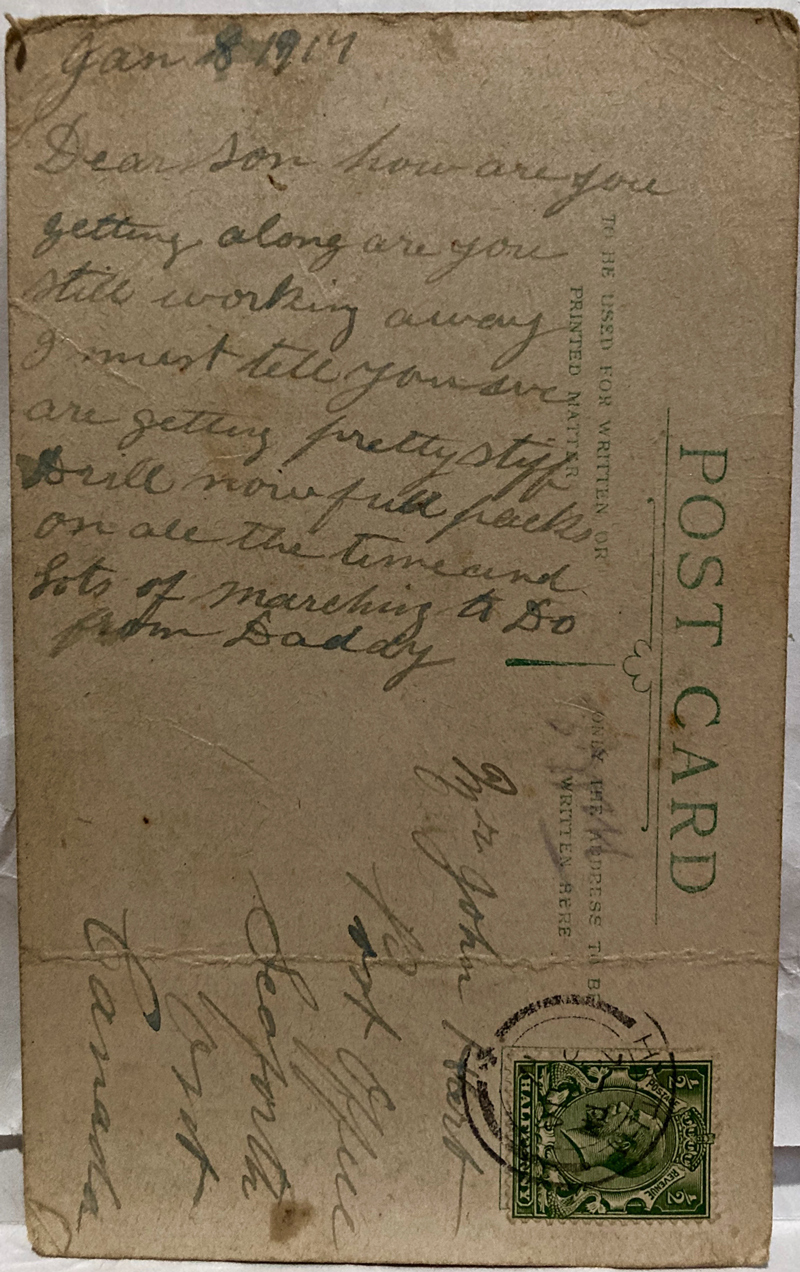 Jan 8 1917
Dear son how are you
getting along are you
still working away
I must tell you we
are getting pretty stiff
Drill now full packs
on all the time and
Lots of marching to Do
from Daddy
POST CARD
TO BE USED FOR WRITTEN OR
PRINTED MATTER
ONLY THE ADDRESS TO BE
WRITTEN HERE
Mr John Hart
Post Office
Seaforth
Ont
Canada
POSTAGE
REVENUE
1/2
1/2
HALFPENNY